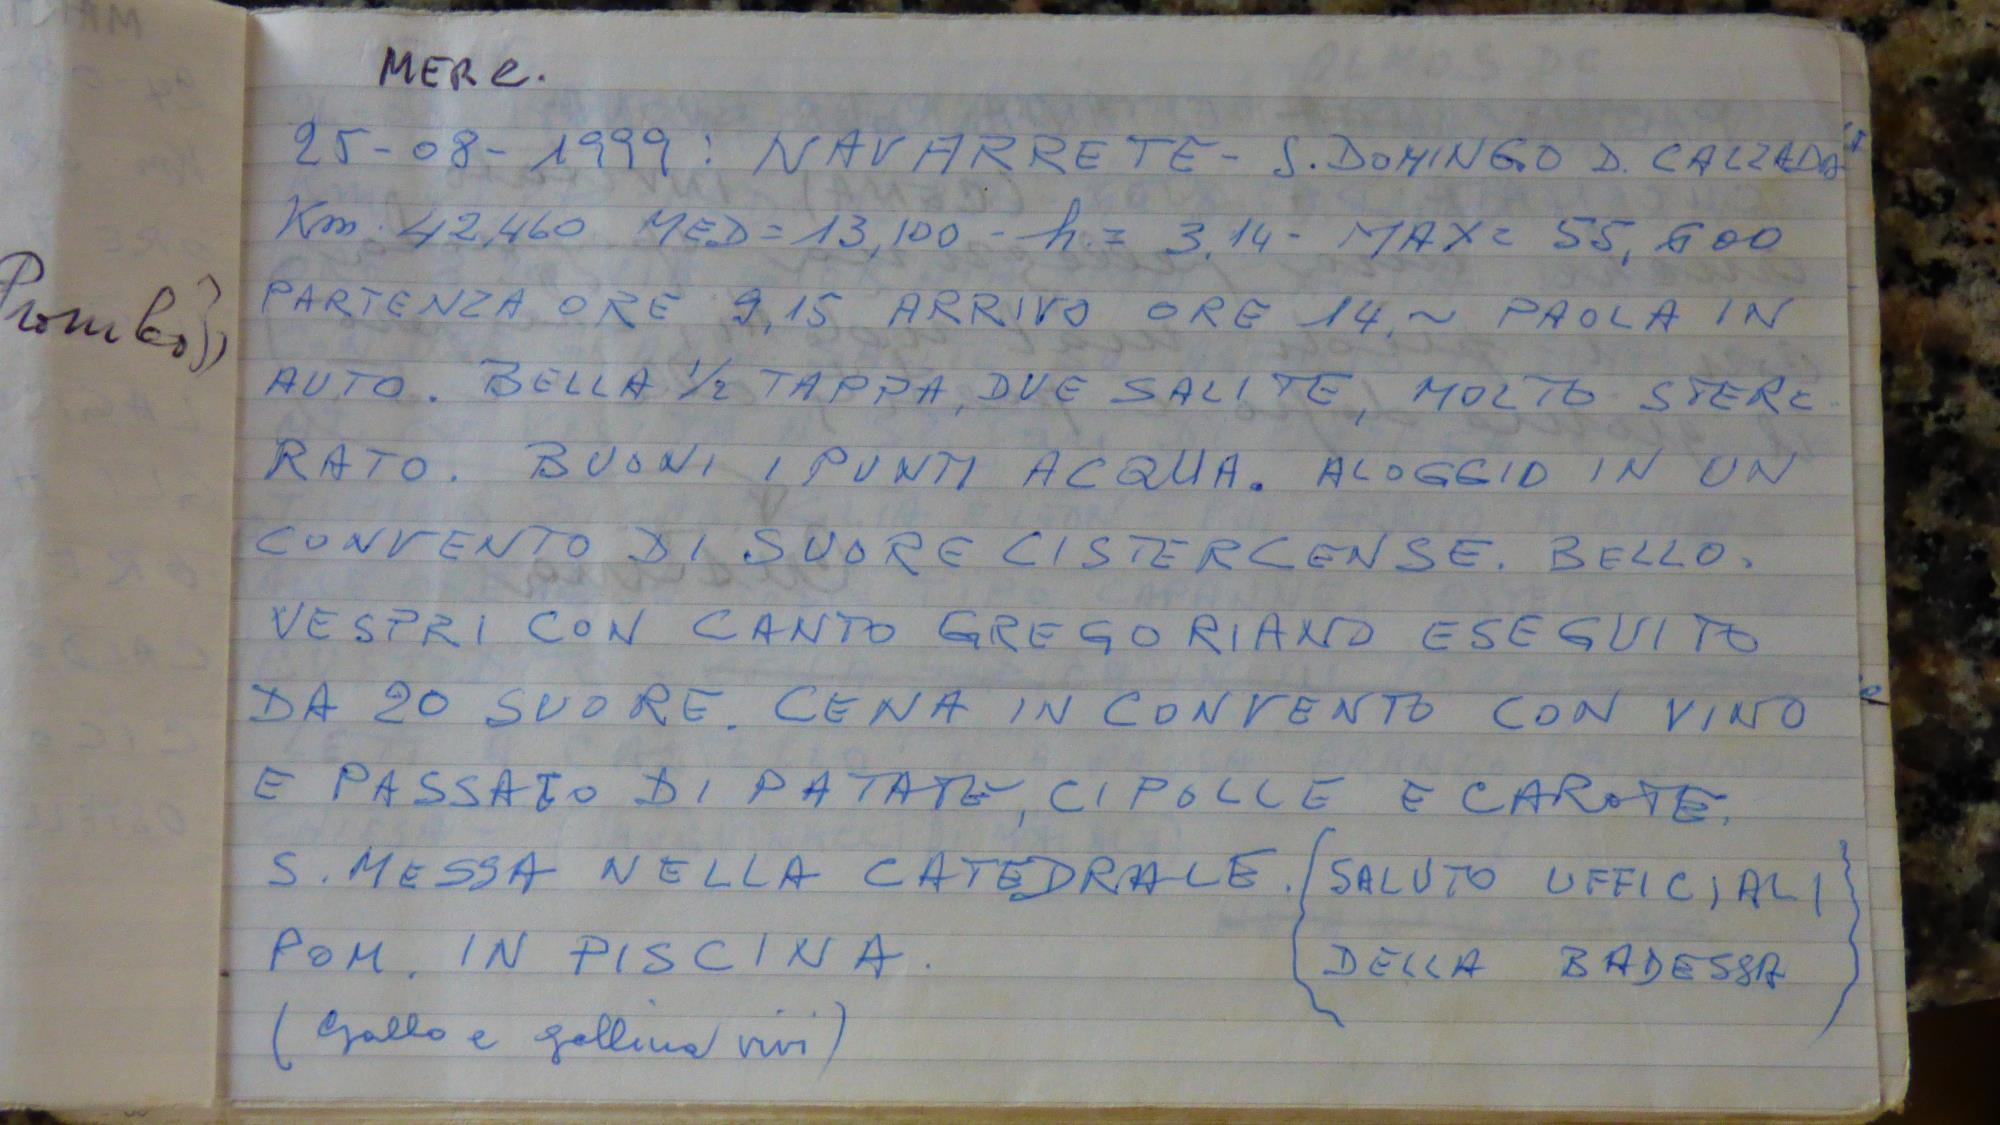 MERC.
25-08-1999: NAVARRETE - S. DOMINGO D. CALZADA
Km. 42,460 MED = 13,100 - h. = 3,14 - MAX = 55,600
PARTENZA ORE 9,15 ARRIVO ORE 14,~ PAOLA IN
AUTO. BELLA 1/2 TAPPA, DUE SALITE, MOLTO STER
RATO. BUONI I PUNTI ACQUA. ALOGGIO IN UN
CONVENTO DI SUORE CISTERCENSE. BELLO.
VESPRI CON CANTO GREGORIANO ESEGUITO
DA 20 SUORE. CENA IN CONVENTO CON VINO
E PASSATO DI PATATE, CIPOLLE E CAROTE.
S. MESSA NELLA CATEDRALE. {SALUTO UFFICIALI
POM. IN PISCINA. DELLA BADESSA}
(Gallo e gallina vivi)